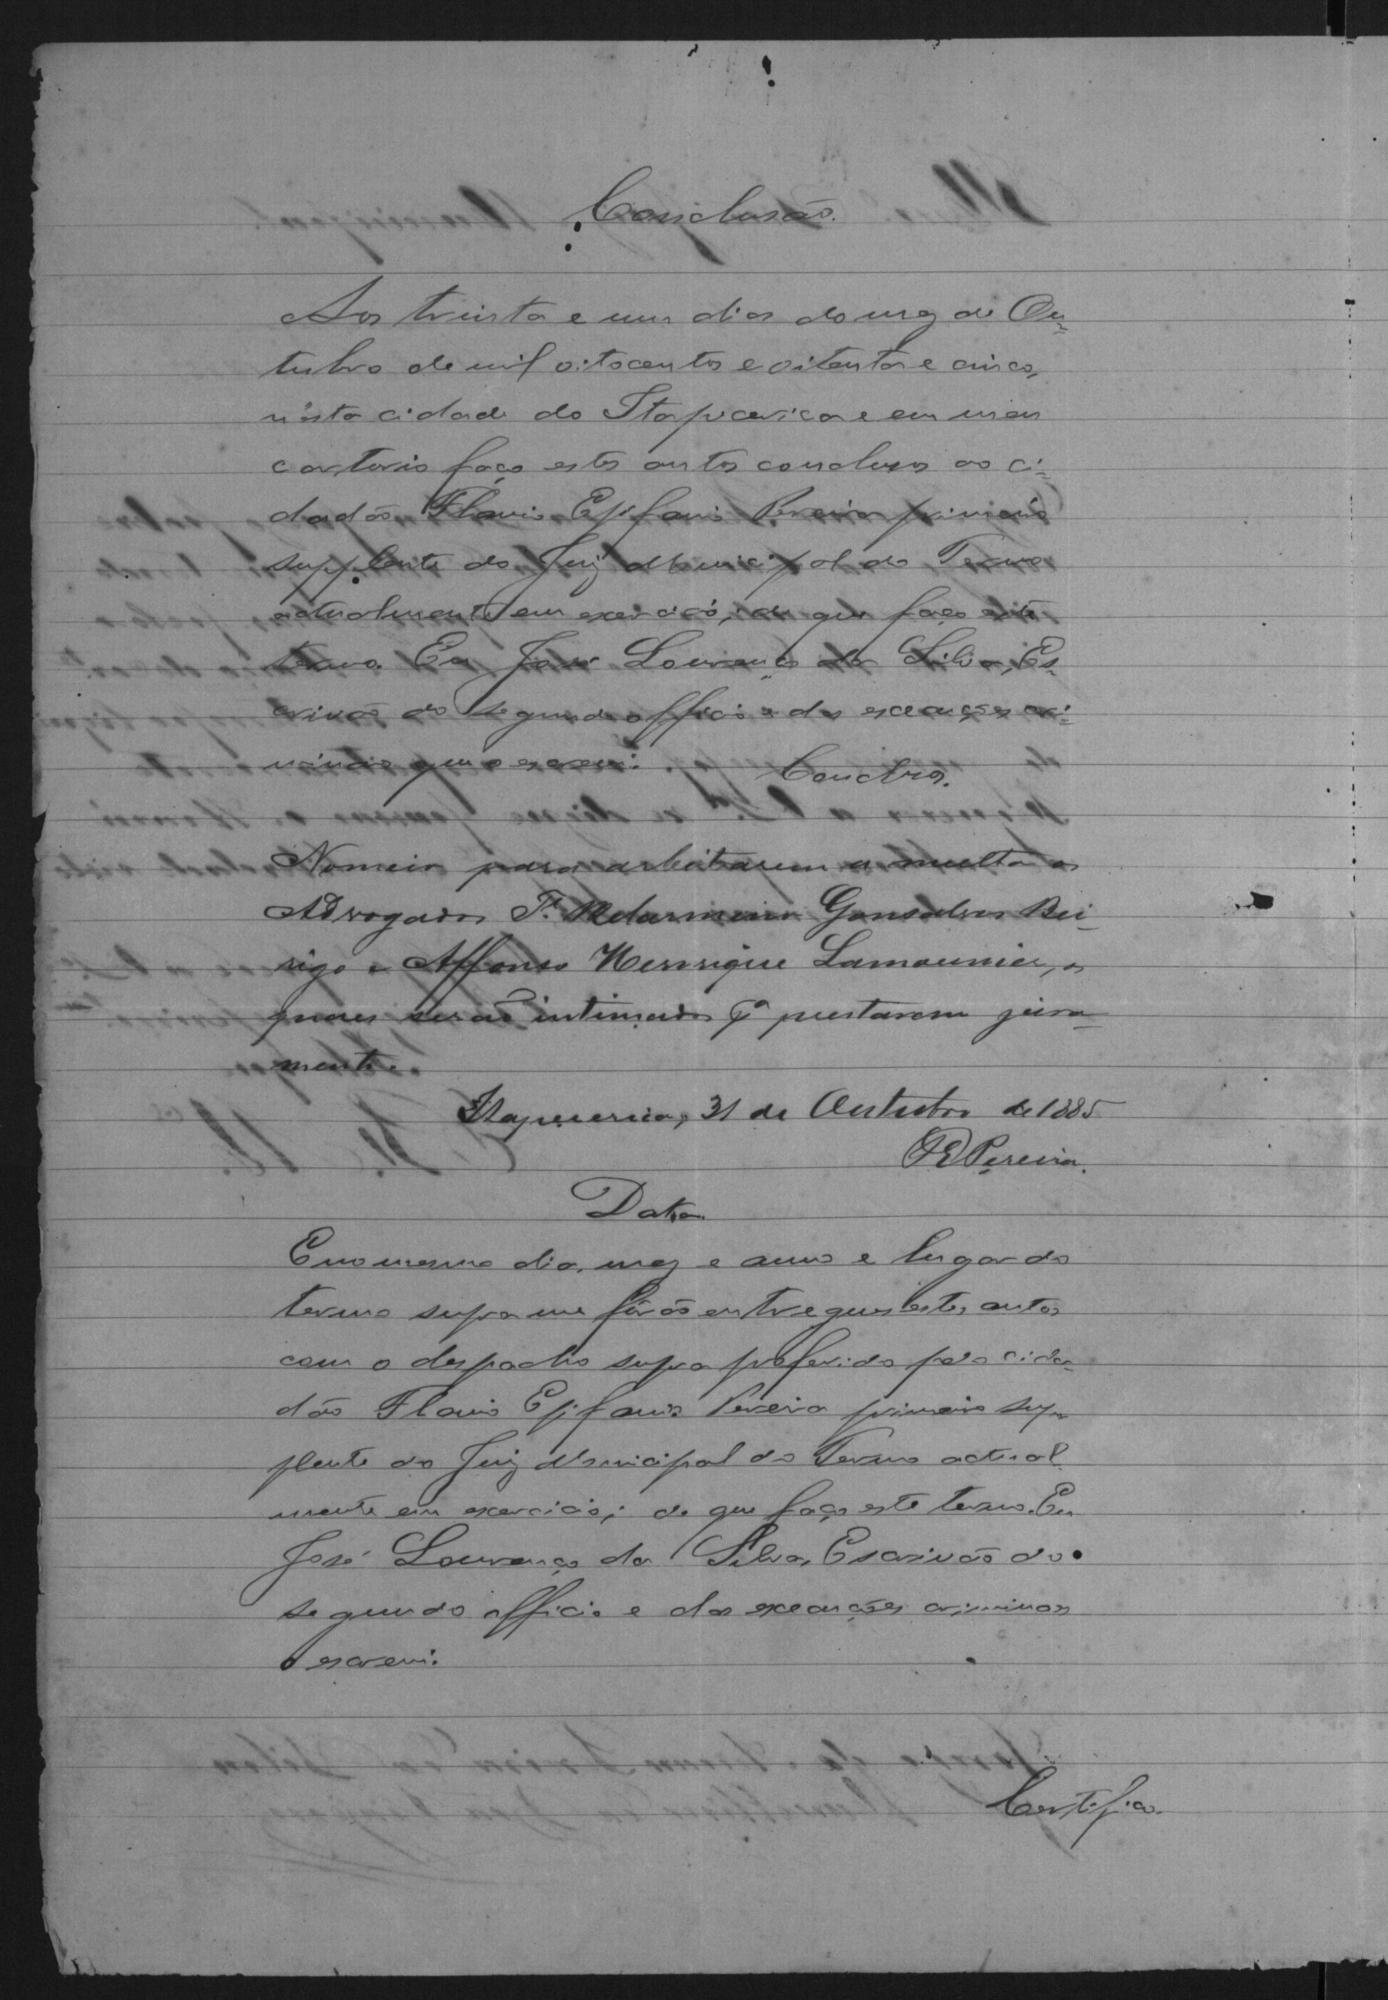 Conclusão.
Aos trinta e um dias do mez de Ou=
tubro de mil oitocentos e oitenta e cinco,
nésta cidade do Itapecerica e em meu
cartorio faço estes autos conclusos ao ci=
dadão Flavio Epifanio Pereira primeiro
supplente do Juiz Municipal do Termo
actualmente em exercicio, do que faço este
termo. Eu José Lourenço da Silva, Es=
crivão do segundo officio e das execuções cri=
minaes que o escrevi.
Conclzos.
Nomeio para arbitrarem a multa os
Advogados Gonsalves Bei=
rigo e Affonso Henrique Lamounier, os
quaes serão intimados pª prestarem jura=
mento.
Itapecerica, 31 de Outubro de 1885
F E Pereira.
Data
Em o mesmo dia, mez e anno e lugar do
termo supra me fôrão entregues estes autos
com o despacho supra proferido pelo cida=
dão Flavio Epifanio Pereira primeiro sup=
plente do Juiz Municipal do Termo actual
mente em exercicio; do que faço este termo. Eu
José Lourenço da Silva, Escrivão do
segundo officio e das execuções criminaes
o escrevi.
Certifico.